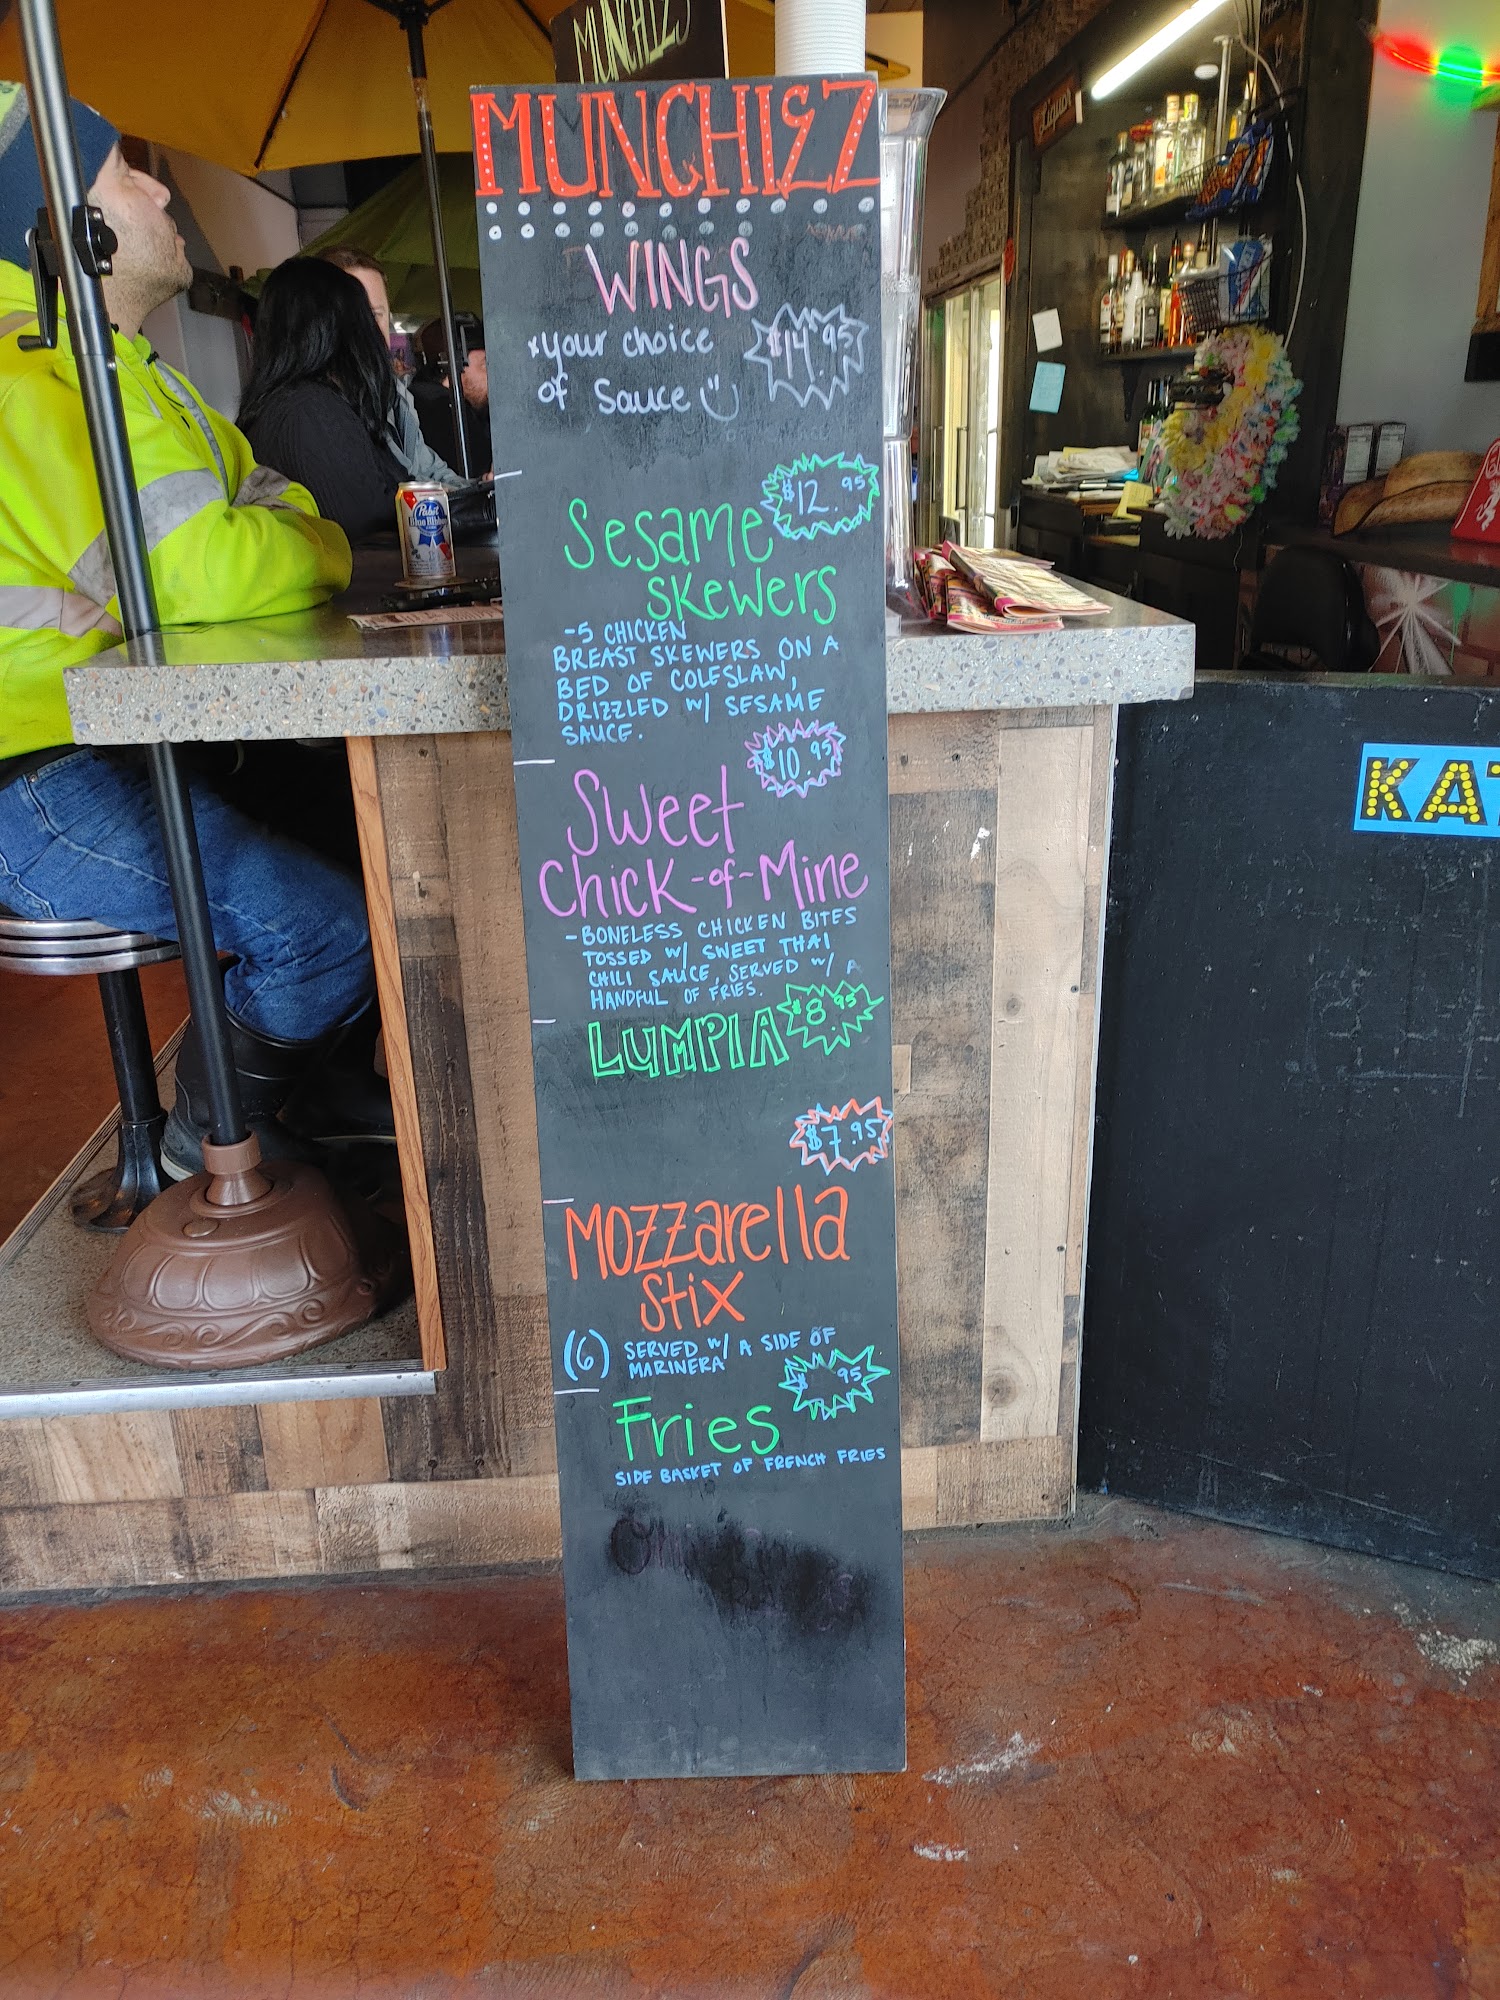 MUNCHIZ
MUNCHIEZ
WINGS
*your choice
of Sauce
$14.95
$12.95
Sesame
Skewers
-5 CHICKEN
BREAST SKEWERS ON A
BED OF COLESLAW,
DRIZZLED W/ SESAME
SAUCE.
$10.95
Sweet
Chick-of-Mine
-BONELESS CHICKEN BITES
TOSSED W/ SWEET THAI
CHILI SAUCE, SERVED W/ A
HANDFUL OF FRIES.
LUMPIA
$8.95
$7.95
Mozzarella
Stix
(6) SERVED W/ A SIDE OF
MARINERA
$ .95
Fries
SIDE BASKET OF FRENCH FRIES
Pabst
Blue Ribbon
Liquor
KAT